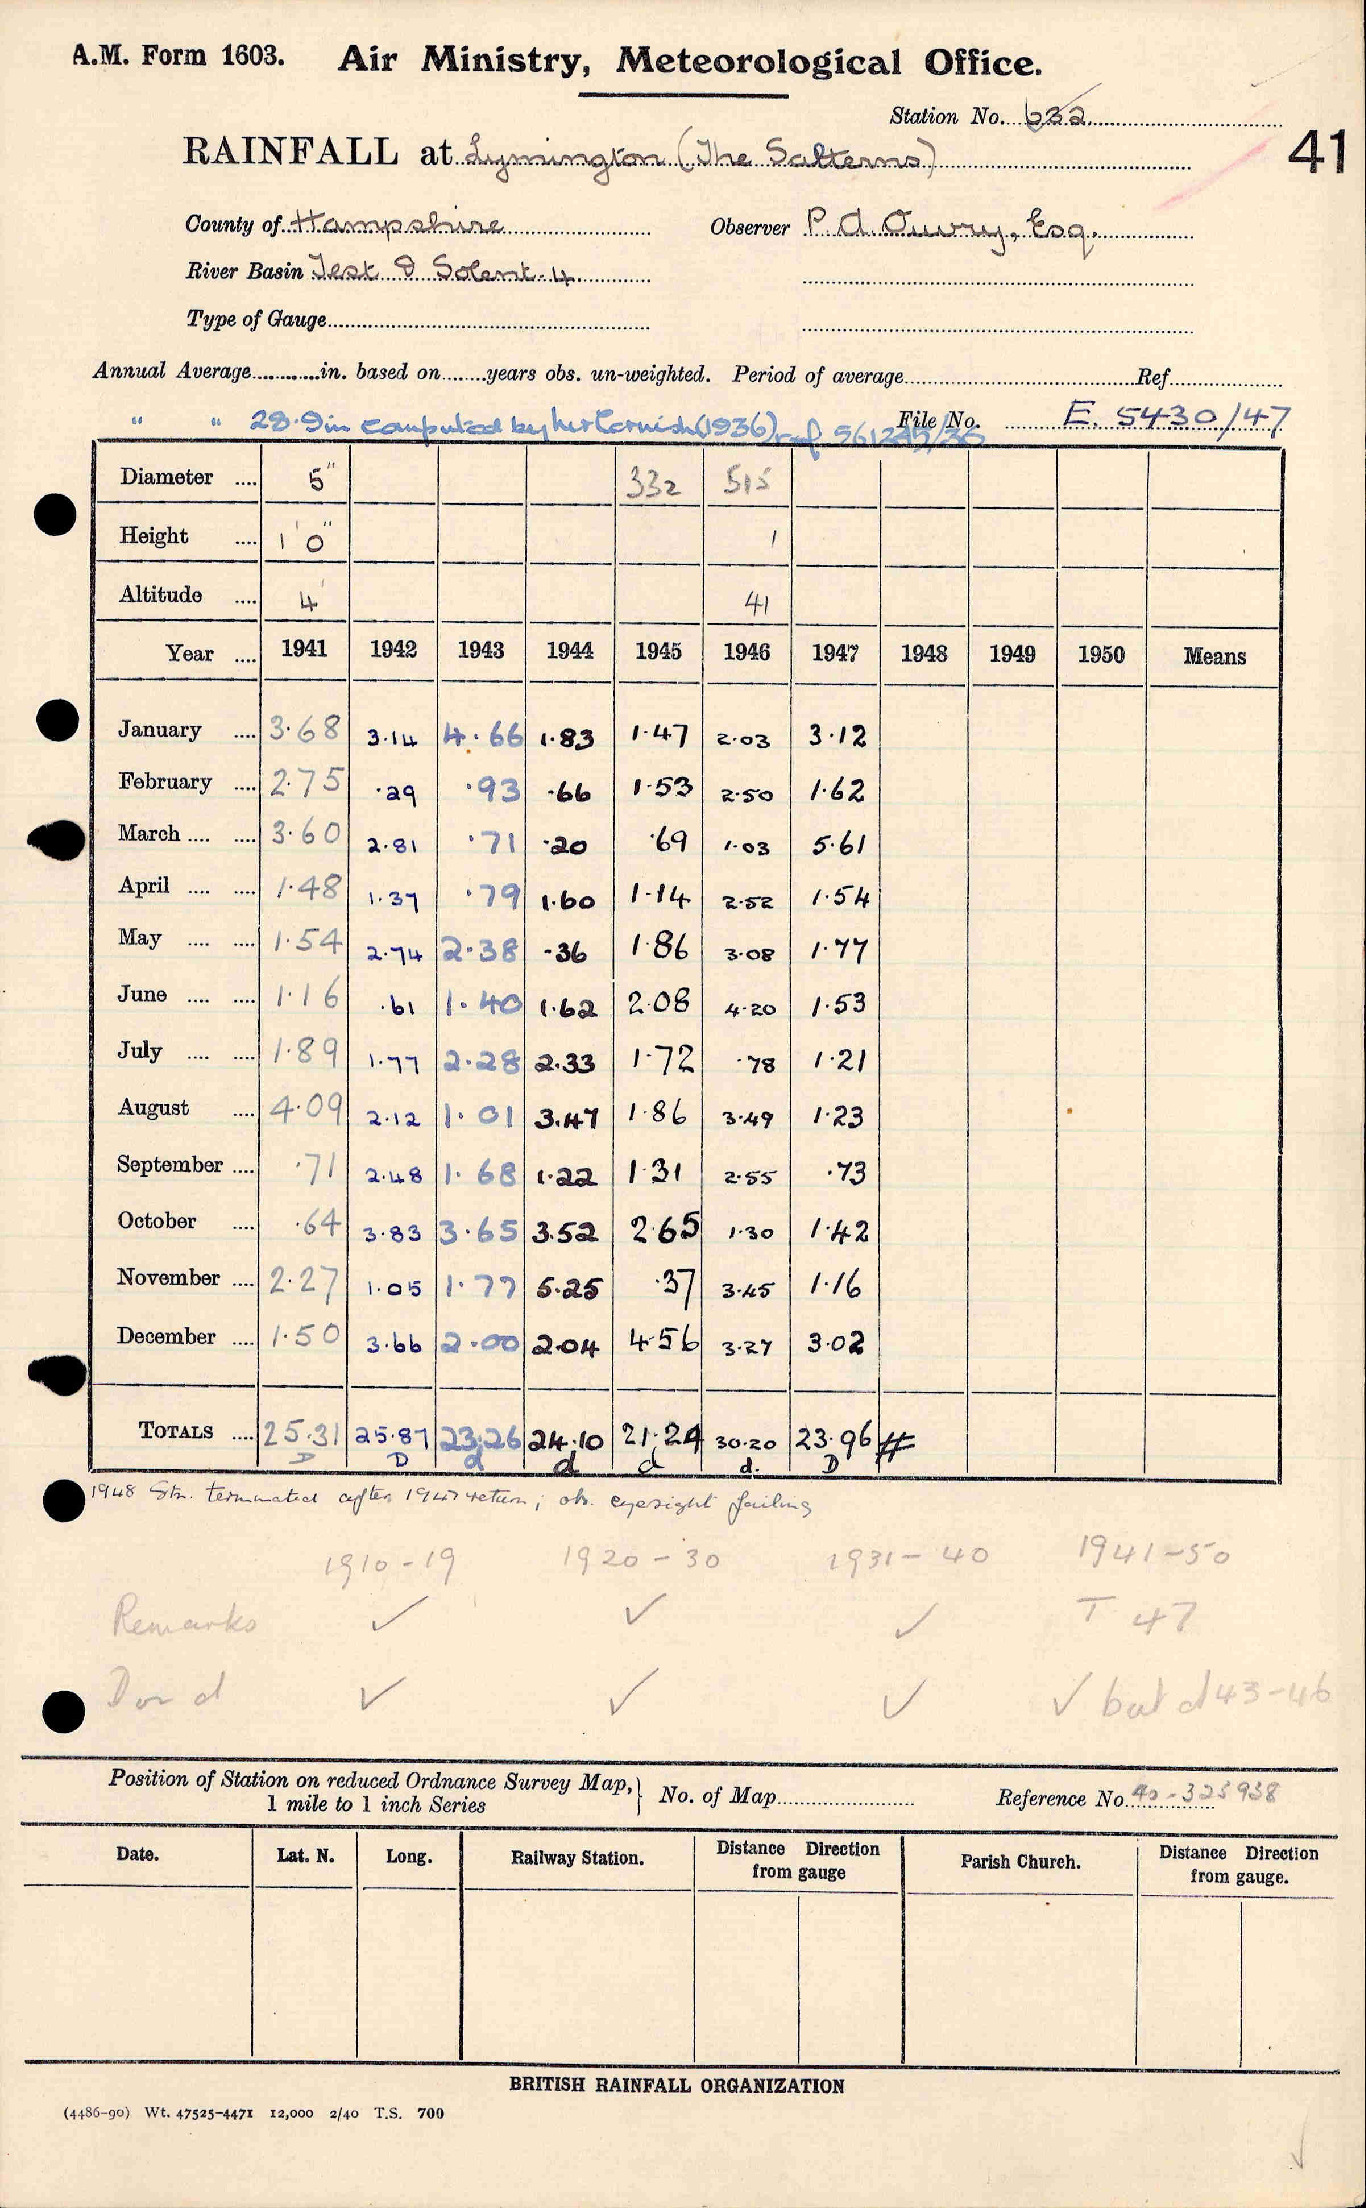 A.M. Form 1603. Air Ministry, Meteorological Office.
Station No. 632
RAINFALL at Lymington (The Salterns)
41
County of Hampshire Observer P. D. Ouvry, Esq.
River Basin Test & Solent. 4
Type of Gauge
Annual Average in. based on years obs. un-weighted. Period of average Ref
" " 28.9in computed by Mr Cornish (1936) ref 561245/36 File No. E. 5430/47
Diameter .... 5" 332 515
Height .... 1' 0" 1
Altitude .... 4' 41
Year .... 1941 1942 1943 1944 1945 1946 1947 1948 1949 1950 Means
January .... 3.68 3.14 4.66 1.83 1.47 2.03 3.12
February .... 2.75 .29 .93 .66 1.53 2.50 1.62
March .... .... 3.60 2.81 .71 .20 .69 1.03 5.61
April .... .... 1.48 1.37 .79 1.60 1.14 2.52 1.54
May .... .... 1.54 2.74 2.38 .36 1.86 3.08 1.77
June .... .... 1.16 .61 1.40 1.62 2.08 4.20 1.53
July .... .... 1.89 1.77 2.28 2.33 1.72 .78 1.21
August .... 4.09 2.12 1.01 3.47 1.86 3.49 1.23
September .... .71 2.48 1.68 1.22 1.31 2.55 .73
October .... .64 3.83 3.65 3.52 2.65 1.30 1.42
November .... 2.27 1.05 1.77 5.25 .37 3.45 1.16
December .... 1.50 3.66 2.00 2.04 4.56 3.27 3.02
TOTALS .... 25.31 25.87 23.26 24.10 21.24 30.20 23.96 #
D D d d d d. D
1948 Stn. terminated after 1947 return; obs. eyesight failing
1910-19 1920-30 1931-40 1941-50
Remarks ✓ ✓ ✓ T 47
D or d ✓ ✓ ✓ ✓ but d 43-46
Position of Station on reduced Ordnance Survey Map, 1 mile to 1 inch Series } No. of Map Reference No. 40-325938
Date. Lat. N. Long. Railway Station. Distance Direction from gauge Parish Church. Distance Direction from gauge.
BRITISH RAINFALL ORGANIZATION
(4486-90) Wt. 47525-4471 12,000 2/40 T.S. 700